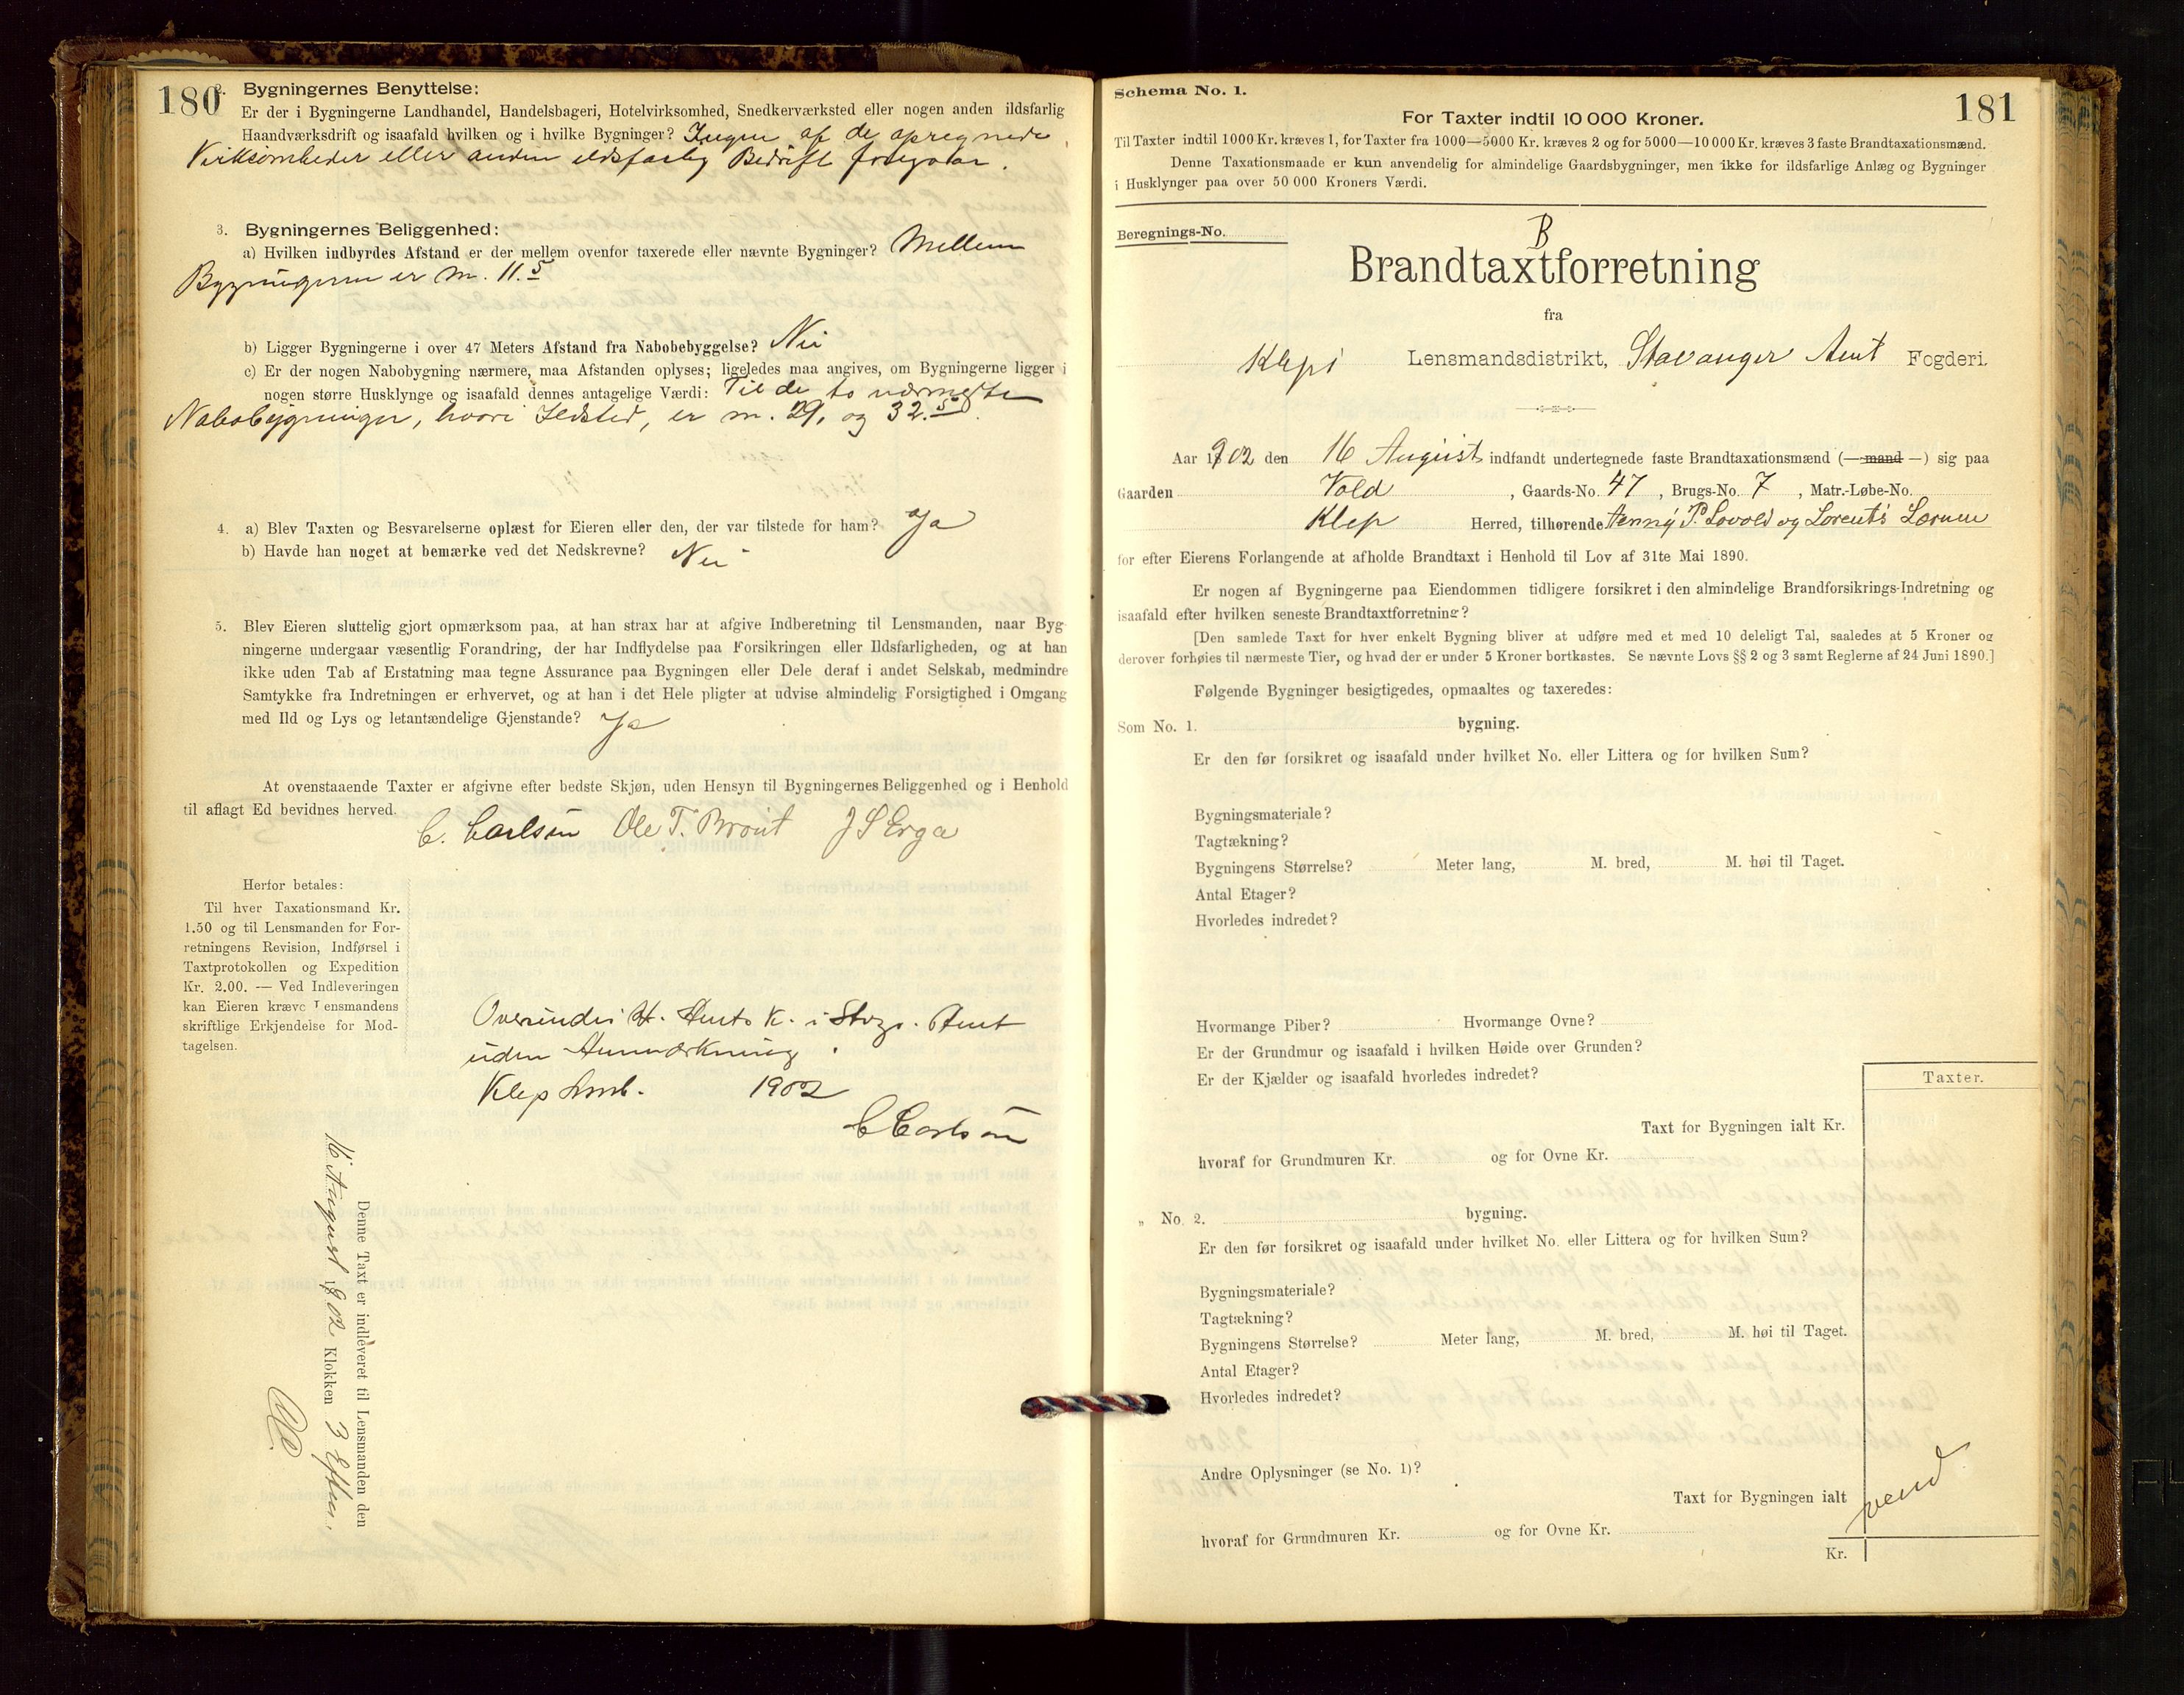 180
2. Bygningernes Benyttelse:
Er der i Bygningerne Landhandel, Handelsbageri, Hotelvirksomhed, Snedkerværksted eller nogen anden ildsfarlig
Haandværksdrift og isaafald hvilken og i hvilke Bygninger? Ingen af de opregnede
Virksomheder eller anden ildsfarlig Bedrift foregaar.
3. Bygningernes Beliggenhed:
a) Hvilken indbyrdes Afstand er der mellem ovenfor taxerede eller nævnte Bygninger? Mellem
Bygningerne er m. 11.5
b) Ligger Bygningerne i over 47 Meters Afstand fra Nabobebyggelse? Nei
c) Er der nogen Nabobygning nærmere, maa Afstanden oplyses; ligeledes maa angives, om Bygningerne ligger i
nogen større Husklynge og isaafald dennes antagelige Værdi: Til de to nærmeste
Nabobygninger, hvori Ildsted, er m. 29, og 32.5
4. a) Blev Taxten og Besvarelserne oplæst for Eieren eller den, der var tilstede for ham? Ja
b) Havde han noget at bemærke ved det Nedskrevne? Nei
5. Blev Eieren sluttelig gjort opmærksom paa, at han strax har at afgive Indberetning til Lensmanden, naar Byg
ningerne undergaar væsentlig Forandring, der har Indflydelse paa Forsikringen eller Ildsfarligheden, og at han
ikke uden Tab af Erstatning maa tegne Assurance paa Bygningen eller Dele deraf i andet Selskab, medmindre
Samtykke fra Indretningen er erhvervet, og at han i det Hele pligter at udvise almindelig Forsigtighed i Omgang
med Ild og Lys og letantændelige Gjenstande? Ja
At ovenstaaende Taxter er afgivne efter bedste Skjøn, uden Hensyn til Bygningernes Beliggenhed og i Henhold
til aflagt Ed bevidnes herved.
C. Carlsen Ole T. Braut J S Erga
Herfor betales:
Til hver Taxationsmand Kr.
1.50 og til Lensmanden for For-
retningens Revision, Indførsel i
Taxtprotokollen og Expedition
Kr. 2.00. — Ved Indleveringen
kan Eieren kræve Lensmandens
skriftlige Erkjendelse for Mod-
tagelsen.
Oversendes Hr. Amts K. i Stvgr. Amt
uden Anmærkning.
Klep Lmb. 1902
C Carlsen
Denne Taxt er indleveret til Lensmanden den
16 August 1902 Klokken 3 Efterm.
CC.
Schema No. 1.
181
For Taxter indtil 10 000 Kroner.
Til Taxter indtil 1000 Kr. kræves 1, for Taxter fra 1000—5000 Kr. kræves 2 og for 5000—10 000 Kr. kræves 3 faste Brandtaxationsmænd.
Denne Taxationsmaade er kun anvendelig for almindelige Gaardsbygninger, men ikke for ildsfarlige Anlæg og Bygninger
i Husklynger paa over 50 000 Kroners Værdi.
Beregnings-No.
B
Brandtaxtforretning
fra
Klepi Lensmandsdistrikt, Stavanger Amt Fogderi.
Aar 1902 den 16 August indfandt undertegnede faste Brandtaxationsmænd (— mand —) sig paa
Gaarden Vold, Gaards-No. 47, Brugs-No. 7, Matr.-Løbe-No.
Klep Herred, tilhørende Jenny P. Lovold og Lorents Lornu
for efter Eierens Forlangende at afholde Brandtaxt i Henhold til Lov af 31te Mai 1890.
Er nogen af Bygningerne paa Eiendommen tidligere forsikret i den almindelige Brandforsikrings-Indretning og
isaafald efter hvilken seneste Brandtaxtforretning?
[Den samlede Taxt for hver enkelt Bygning bliver at udføre med et med 10 deleligt Tal, saaledes at 5 Kroner og
derover forhøies til nærmeste Tier, og hvad der er under 5 Kroner bortkastes. Se nævnte Lovs §§ 2 og 3 samt Reglerne af 24 Juni 1890.]
Følgende Bygninger besigtigedes, opmaaltes og taxeredes:
Som No. 1. bygning.
Er den før forsikret og isaafald under hvilket No. eller Littera og for hvilken Sum?
Bygningsmateriale?
Tagtækning?
Bygningens Størrelse? Meter lang, M. bred, M. høi til Taget.
Antal Etager?
Hvorledes indredet?
Hvormange Piber? Hvormange Ovne?
Er der Grundmur og isaafald i hvilken Høide over Grunden?
Er der Kjælder og isaafald hvorledes indredet?
Taxter.
Taxt for Bygningen ialt Kr.
hvoraf for Grundmuren Kr. og for Ovne Kr.
„ No. 2. bygning.
Er den før forsikret og isaafald under hvilket No. eller Littera og for hvilken Sum?
Bygningsmateriale?
Tagtækning?
Bygningens Størrelse? Meter lang, M. bred, M. høi til Taget.
Antal Etager?
Hvorledes indredet?
Andre Oplysninger (se No. 1)?
Taxt for Bygningen ialt
vend
hvoraf for Grundmuren Kr. og for Ovne Kr.
Kr.